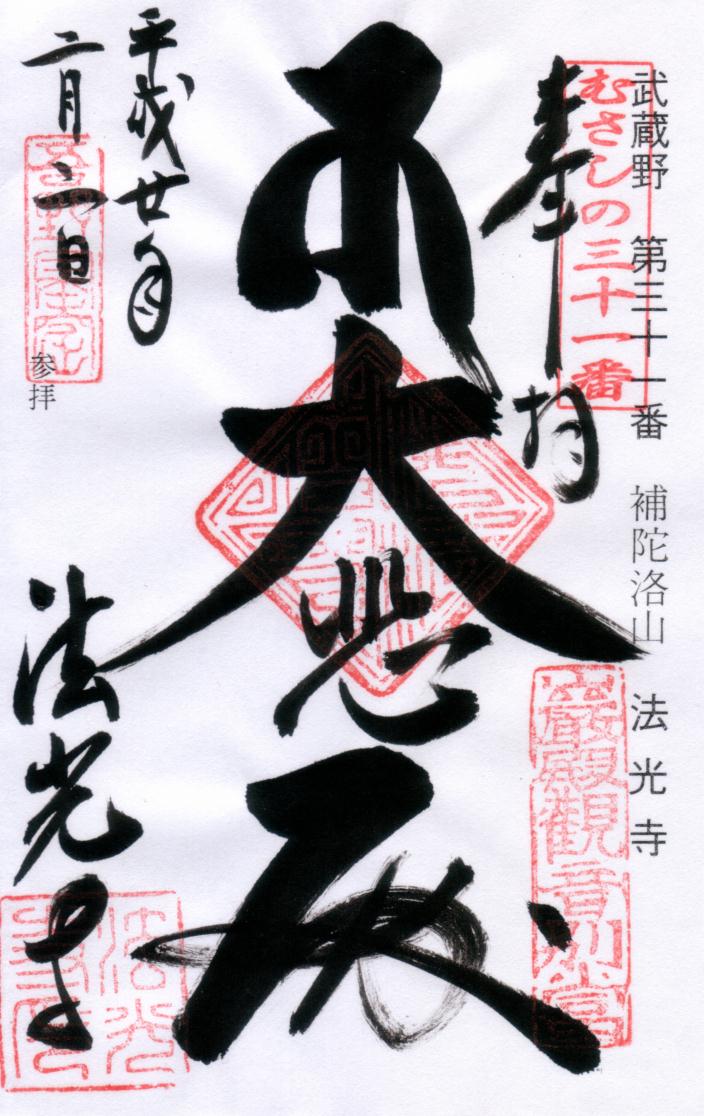 武蔵野 第三十一番 補陀洛山 法光寺
むさしの三十一番
奉拝
巌殿観音別当
大悲殿
平成廿年
二月二日
参拝
法光寺
法光